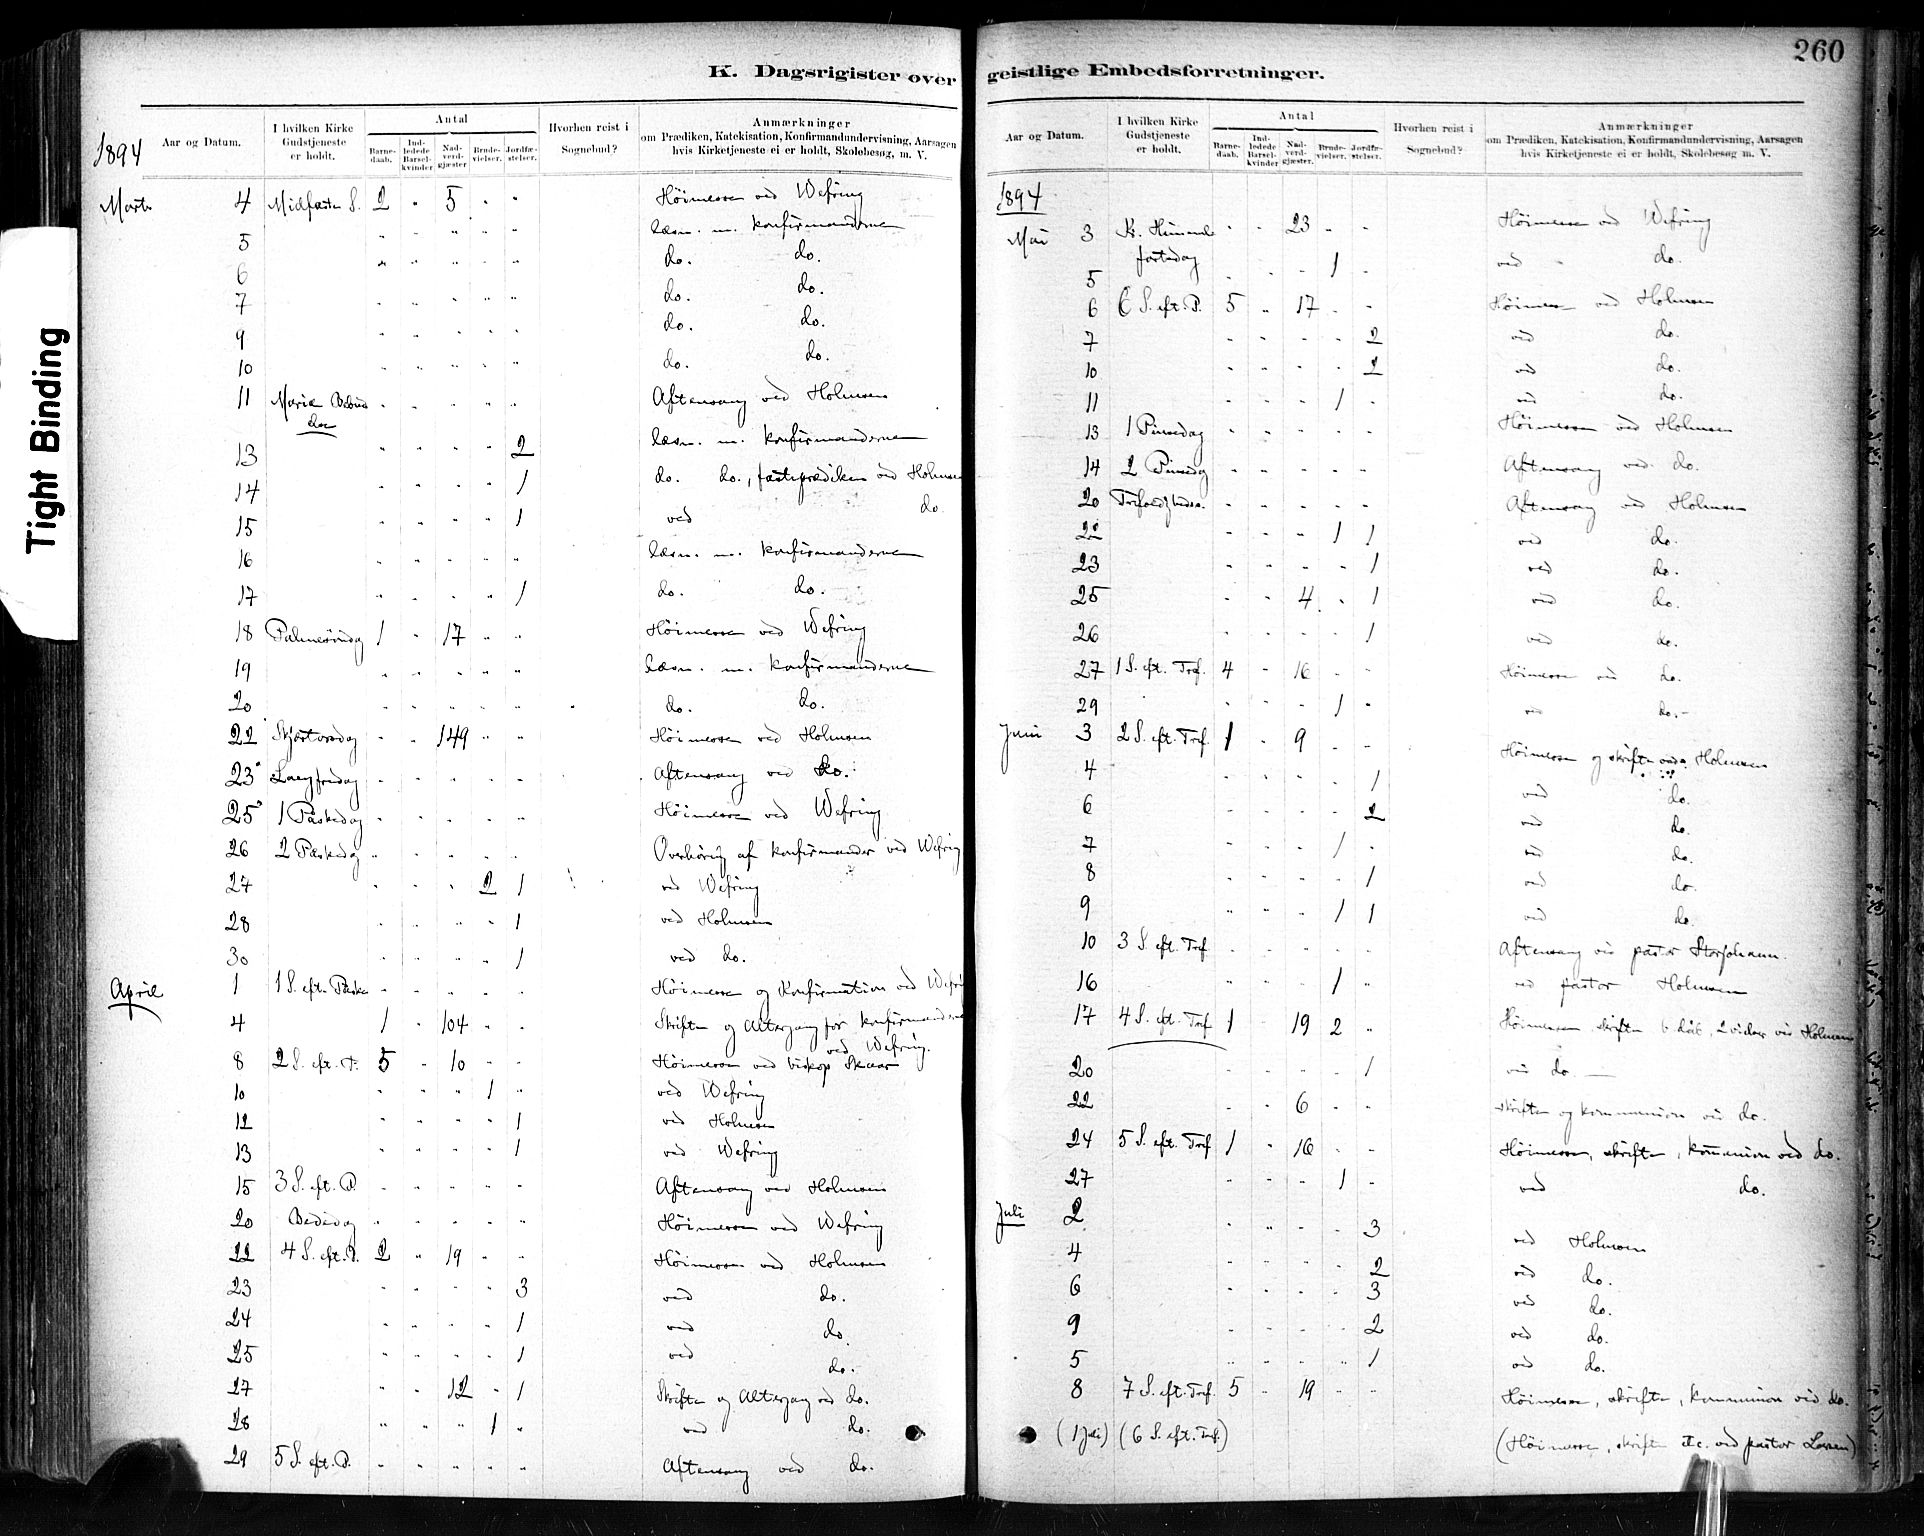 Tight Binding
K. Dagsrigister over
1894
Aar og Datum.
I hvilken Kirke Gudstjeneste er holdt.
Antal
Barnedaab.
Indledede Barselkvinder
Nadverdgjæster
Brudevielser.
Jordfæstelser.
Hvorhen reist i Sognebud?
Anmærkninger
om Prædiken, Katekisation, Konfirmandundervisning, Aarsagen
hvis Kirketjeneste ei er holdt, Skolebesøg, m. V.
Marts 4 Midfaste S. 2 " 5 " " Høimesse ved Wefring
5 " " " " " læsn. m. konfirmanderne
6 " " " " " do. do.
7 " " " " " do. do.
9 " " " " " do. do.
10 " " " " " do. do.
11 Mariæ Bebudelse " " " " " Aftensang ved Holmsen
13 " " " " 2 læsn. m. konfirmanderne
14 " " " " 1 do. do., fasteprædiken ved Holmsen
15 " " " " 1 ved do
16 " " " " " læsn. m. konfirmanderne
17 " " " " 1 do. do.
18 Palmesøndag 1 " 17 " " Høimesse ved Wefring
19 " " " " " læsn. m. konfirmanderne
20 " " " " " do. do.
22 Skjærtorsdag " " 149 " " Høimesse ved Holmsen
23 Langfredag " " " " " Aftensang ved do.
25 1 Paaskedag " " " " " Høimesse ved Wefring
26 2 Paaskedag " " " " " Overhøring af konfirmander ved Wefring
27 " " " 2 1 ved Wefring
28 " " " " 1 ved Holmsen
30 " " " " 1 ved do.
April 1 1 S. eft. Paaske " " " " " Høimesse og Konfirmation ved Wefring
4 1 " 104 " " Skrifte og Altergang for konfirmanderne
ved Wefring.
8 2 S. eft. P. 5 " 10 " " Høimesse ved biskop Skaar
10 " " " 1 ved Wefring
12 " " " " 1 ved Holmsen
13 " " " " 1 ved Wefring
15 3 S. eft. P. " " " " " Aftensang ved Holmsen
20 Bededag " " " " " Høimesse ved Wefring
22 4 S. eft. P. 2 " 19 " " Høimesse ved Holmsen
23 " " " " 3 ved do.
24 " " " " 1 ved do
25 " " " " 1 ved do.
27 " " 12 " 1 Skrifte og Altergang ved do.
28 " " " 1 " ved do.
29 5 S. eft. P. " " " " " Aftensang ved do.
260
geistlige Embedsforretninger.
Aar og Datum.
I hvilken Kirke Gudstjeneste er holdt.
Antal
Barnedaab.
Indledede Barselkvinder
Nadverdgjæster.
Brudevielser.
Jordfæstelser.
Hvorhen reist i Sognebud?
Anmærkninger
om Prædiken, Katekisation, Konfirmandundervisning, Aarsagen
hvis Kirketjeneste ei er holdt, Skolebesøg m. V.
1894
Mai 3 Kr. Himmelfartsdag " " 23 " " Høimesse ved Wefring
5 " " " 1 " ved do.
6 6 S. eft. P. 5 " 17 " " Høimesse ved Holmsen
7 " " " " 2 ved do.
10 " " " " 2 ved do.
11 " " " 1 " ved do.
13 1 Pinsedag " " " " " Høimesse ved Holmsen
14 2 Pinsedag " " " " " Aftensang ved do.
20 Trefoldighedss. " " " " " Aftensang ved Holmsen
22 " " " 1 1 ved do.
23 " " " " 1 ved do.
25 " " 4 " 1 ved do.
26 " " " " 1 ved do.
27 1 S. eft. Tref. 4 " 16 " " Høimesse ved do.
29 " " " 1 " ved do.
Juni 3 2 S. eft. Tref. 1 " 9 " " Høimesse og skrifte ved Holmsen
4 1 ved do.
6 2 ved do.
7 " " " 1 " ved do.
8 " " " " 1 ved do.
9 " " " 1 1 ved do.
10 3 S. eft. Tref. " " " " " Aftensang ved pastor Storjohann.
16 " " " 1 " ved pastor Holmsen
17 4 S. eft. Tref 1 " 19 2 " Høimesse, skrifte ved Holmsen
20 " " " " 1 ved do.
22 " " 6 " " skrifte og kommunion ved do.
24 5 S. eft. Tref 1 " 16 " " Høimesse, skrifte, kommunion ved do.
27 " " " 1 " ved do.
Juli 2 " " " " 3 ved Holmsen
4 " " " " 2 ved do.
6 " " " " 3 ved do.
9 " " " " 2 ved do.
5 " " " " 1 ved do.
8 7 S. eft. Tref. 5 " 19 " " Høimesse, skrifte, kommunion ved do.
(1 Juli) (6 S. eft. Tref.) (Høimesse, skrifte etc. ved pastor Lassen)